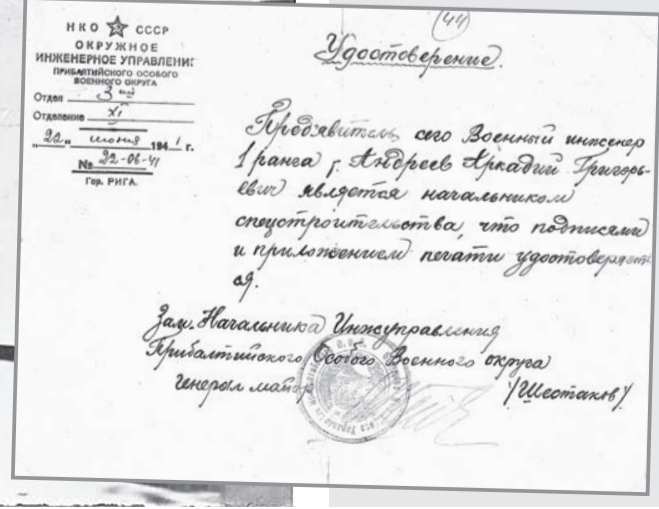 (44)
НКО СССР
ОКРУЖНОЕ
ИНЖЕНЕРНОЕ УПРАВЛЕНИЕ
ПРИБАЛТИЙСКОГО ОСОБОГО
ВОЕННОГО ОКРУГА
Отдел 3ий
Отделение XI
"22" июня 1941 г.
№ 22-06-41
Гор. РИГА.
Удостоверение.
Предъявитель сего Военный инженер
1 ранга г. Андреев Аркадий Григорь-
евич является начальником
спецстроительства, что подписями
и приложением печати удостоверяет-
ся.
Зам. Начальника Инжуправления
Прибалтийского Особого Военного округа
генерал майор /Шестаков/